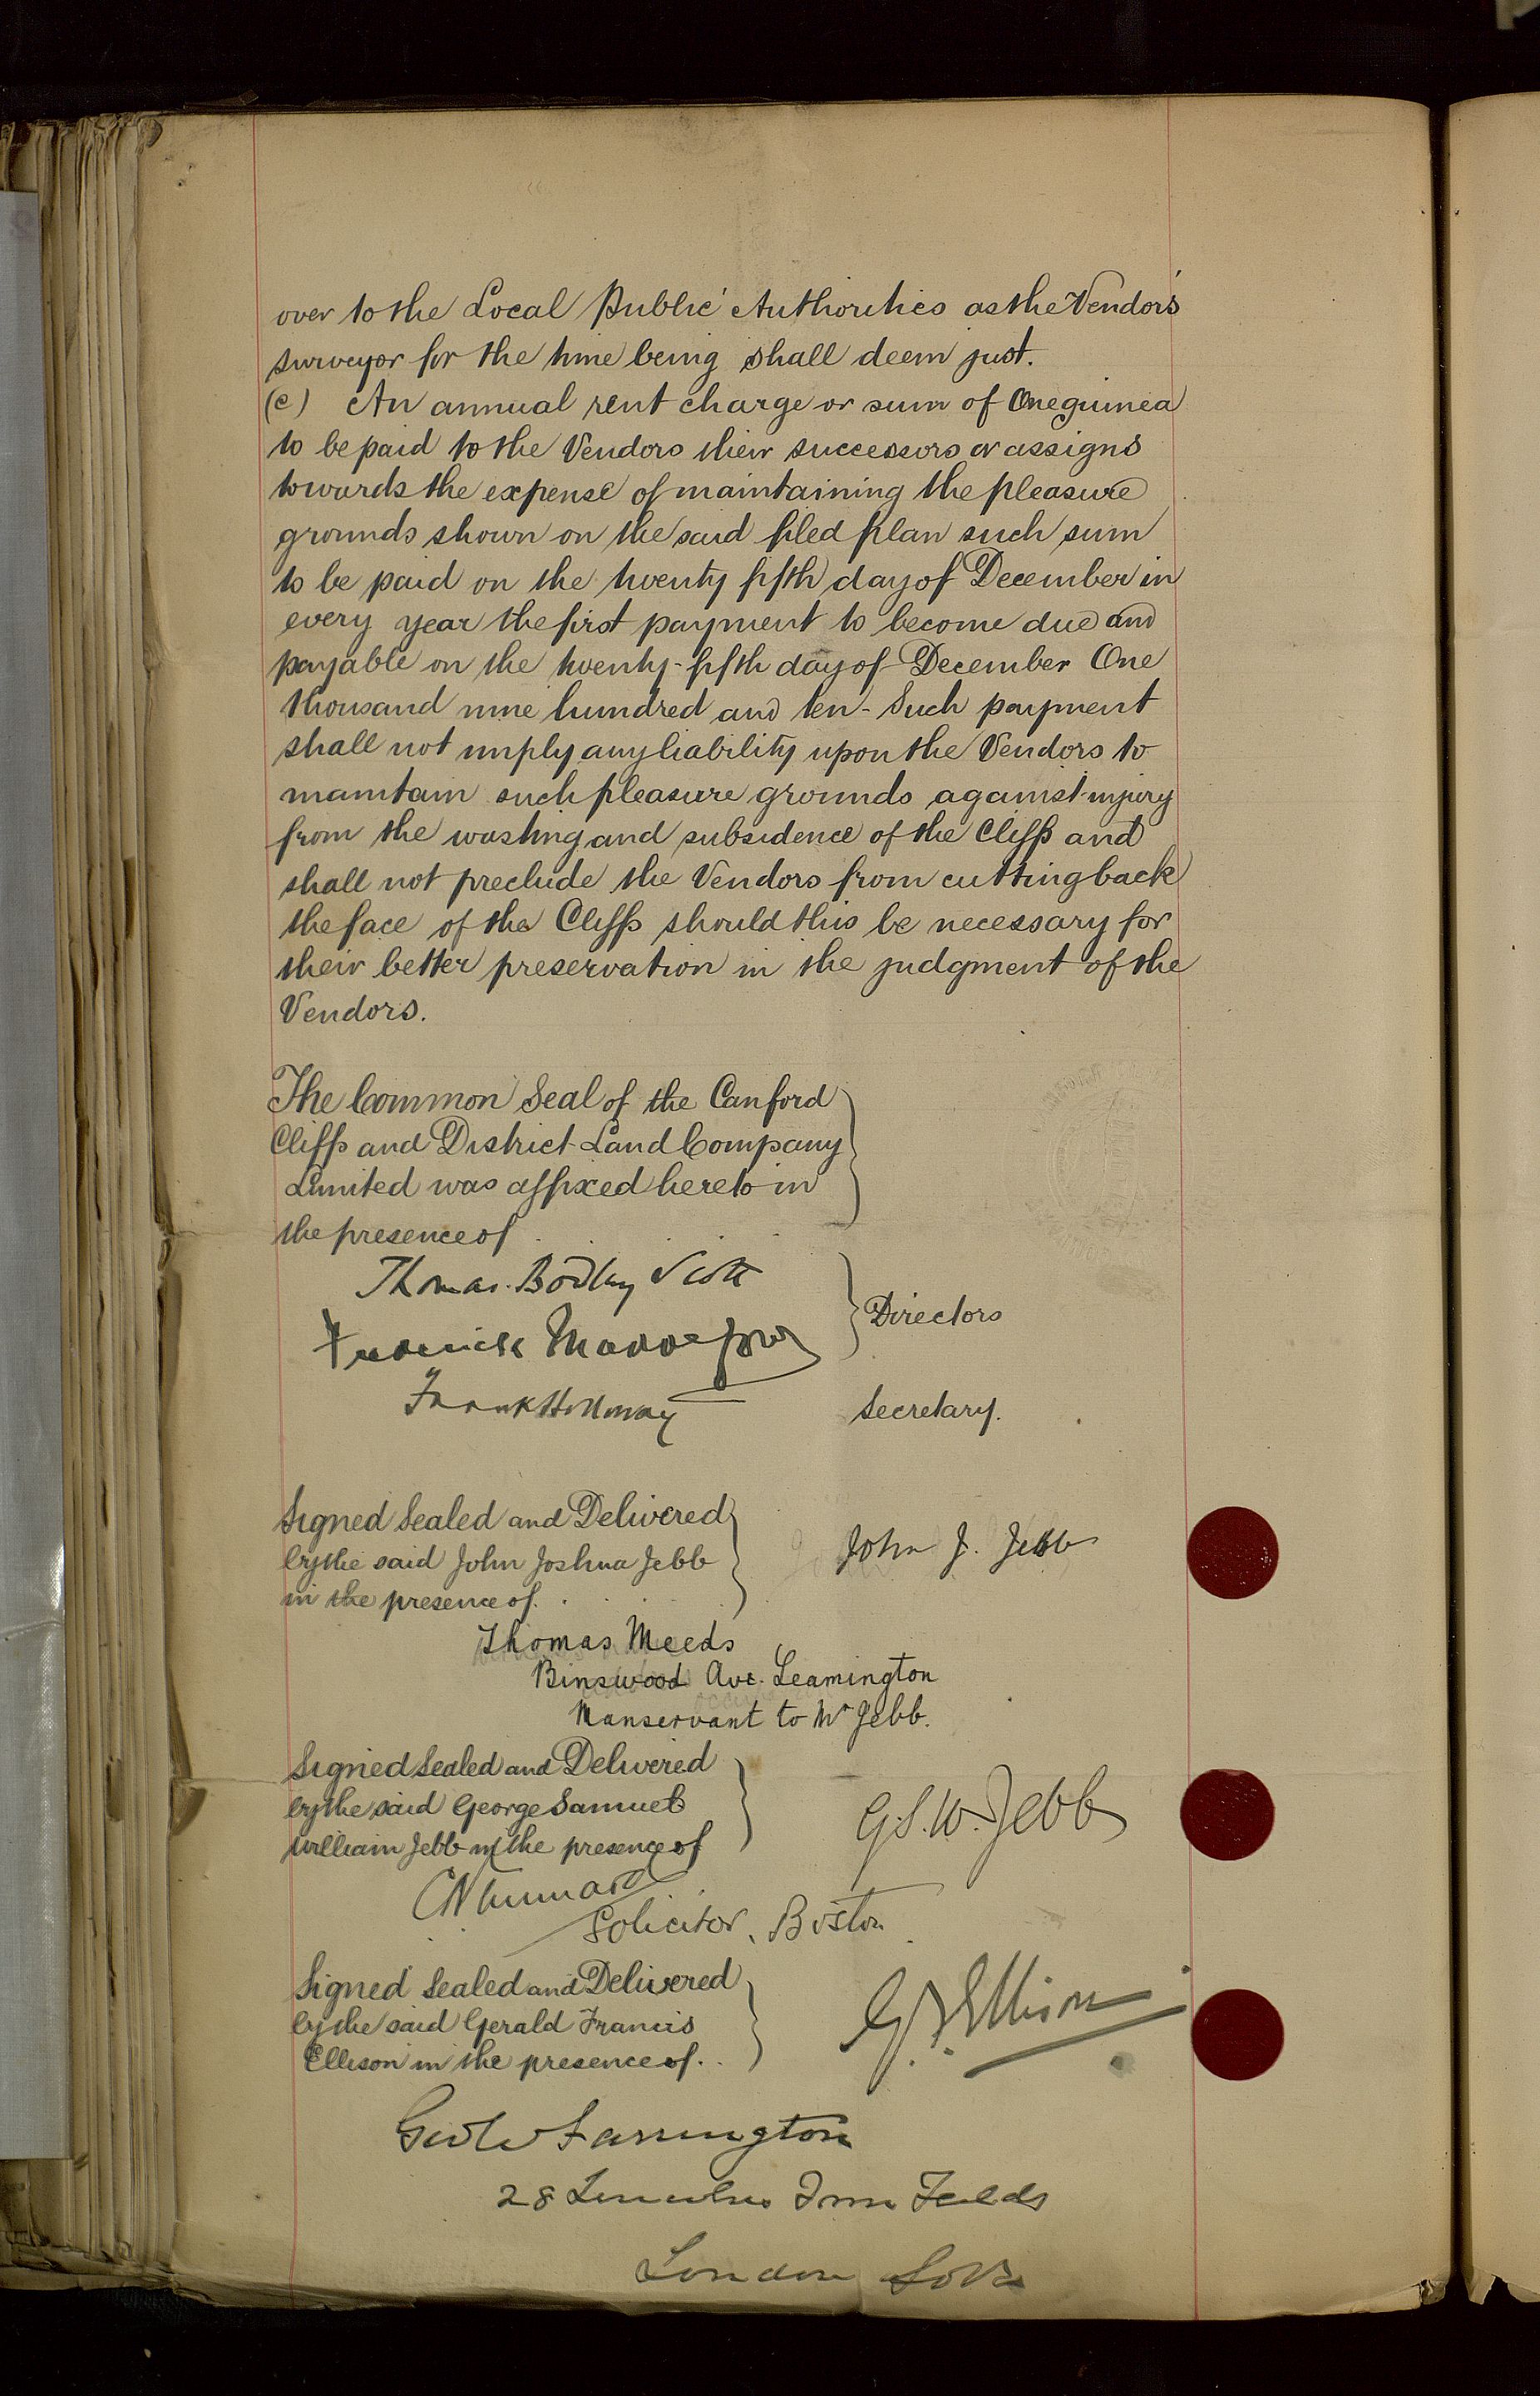 over to the Local Public Authorities as the Vendors'
surveyor for the time being shall deem just.
(c) An annual rent charge or sum of One guinea
to be paid to the Vendors their successors or assigns
towards the expense of maintaining the pleasure
grounds shown on the said filed plan such sum
to be paid on the twenty fifth day of December in
every year the first payment to become due and
payable on the twenty-fifth day of December One
thousand nine hundred and ten - Such payment
shall not imply any liability upon the Vendors to
maintain such pleasure grounds against injury
from the wasting and subsidence of the Cliffs and
shall not preclude the Vendors from cutting back
the face of the Cliffs should this be necessary for
their better preservation in the judgment of the
Vendors.
The Common Seal of the Canford
Cliffs and District Land Company
Limited was affixed hereto in
the presence of
Thomas Bodley Scott
Frederick
Directors
Frank Holloway
Secretary.
Signed Sealed and Delivered
by the said John Joshua Jebb
in the presence of
John J. Jebb
Thomas Meeds
Binswood Ave. Leamington
Manservant to Mr Jebb.
Signed Sealed and Delivered
by the said George Samuel
William Jebb in the presence of
G.S.W. Jebb
Solicitor, Boston
Signed Sealed and Delivered
by the said Gerald Francis
Ellison in the presence of
G.F. Ellison
Farrington
28 Lincolns Inn Fields
London Solr